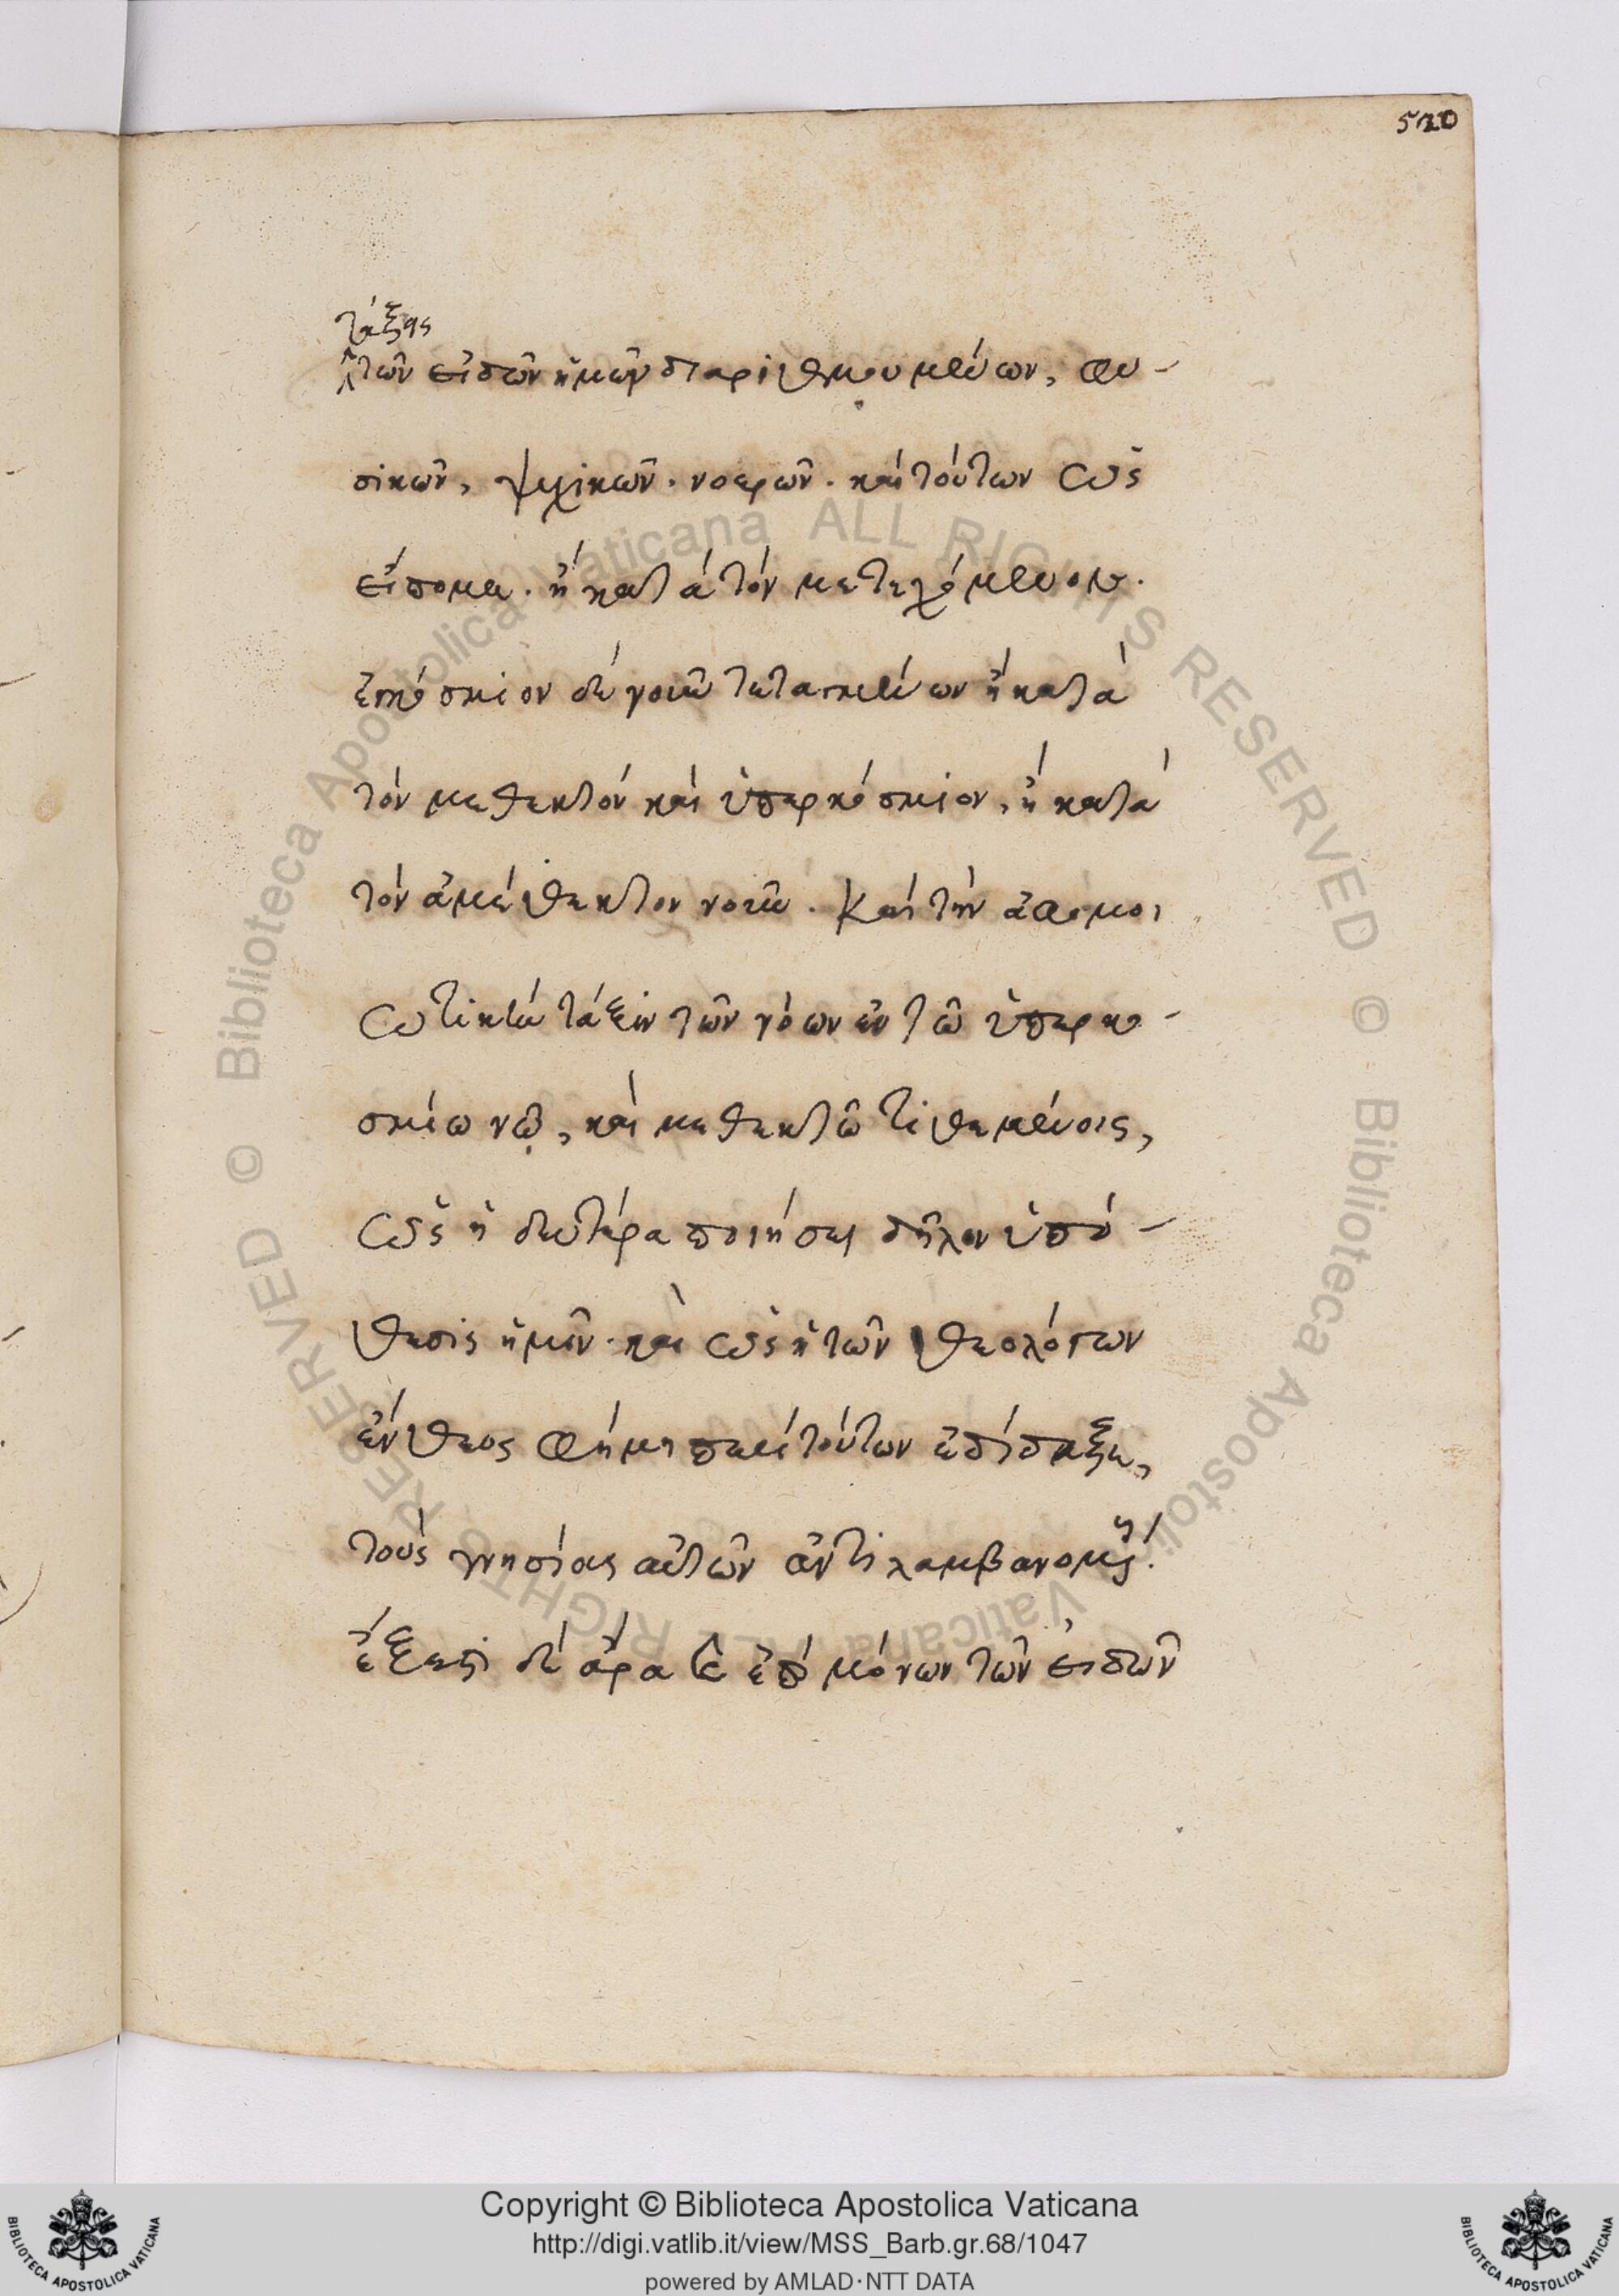 520
τάξεις
τῶν εἰδῶν ἡμῶν διαριθμουμένων, φυ-
σικῶν, ψυχικῶν· νοερῶν· καὶ τούτων ὡς
εἴπομεν· ἢ κατὰ τὸν μετεχόμενον·
ἐγκόσμιον δὲ νοῦν τεταγμένων ἢ κατὰ
τὸν μεθεκτὸν καὶ ὑπερκόσμιον, ἢ κατὰ
τὸν ἀμέθεκτον νοῦν. Καὶ τὴν ἀφομοι
ωτικὴν τάξιν τῶν νόων ἐν τῶ ὑπερκο-
σμίω νῶ, καὶ μεθεκτῶ τιθεμένοις,
ὡς ἡ δευτέρα ποιήσει δῆλον ὑπό-
θεσις ἡμῖν· καὶ ὡς ἡ τῶν θεολόγων
ἔνθεος φήμη περὶ τούτων ἐδίδαξε,
τοὺς γνησίως αὐτῶν ἀντιλαμβανομένους.
ἔξεστι δὲ ἄρα καὶ ἐπὶ μόνων τῶν εἰδῶν
© Biblioteca Apostolica Vaticana ALL RIGHTS RESERVED © Biblioteca Apostolica Vaticana ALL RIGHTS RESERVED
BIBLIOTECA APOSTOLICA VATICANA
Copyright © Biblioteca Apostolica Vaticana
http://digi.vatlib.it/view/MSS_Barb.gr.68/1047
powered by AMLAD·NTT DATA
BIBLIOTECA APOSTOLICA VATICANA